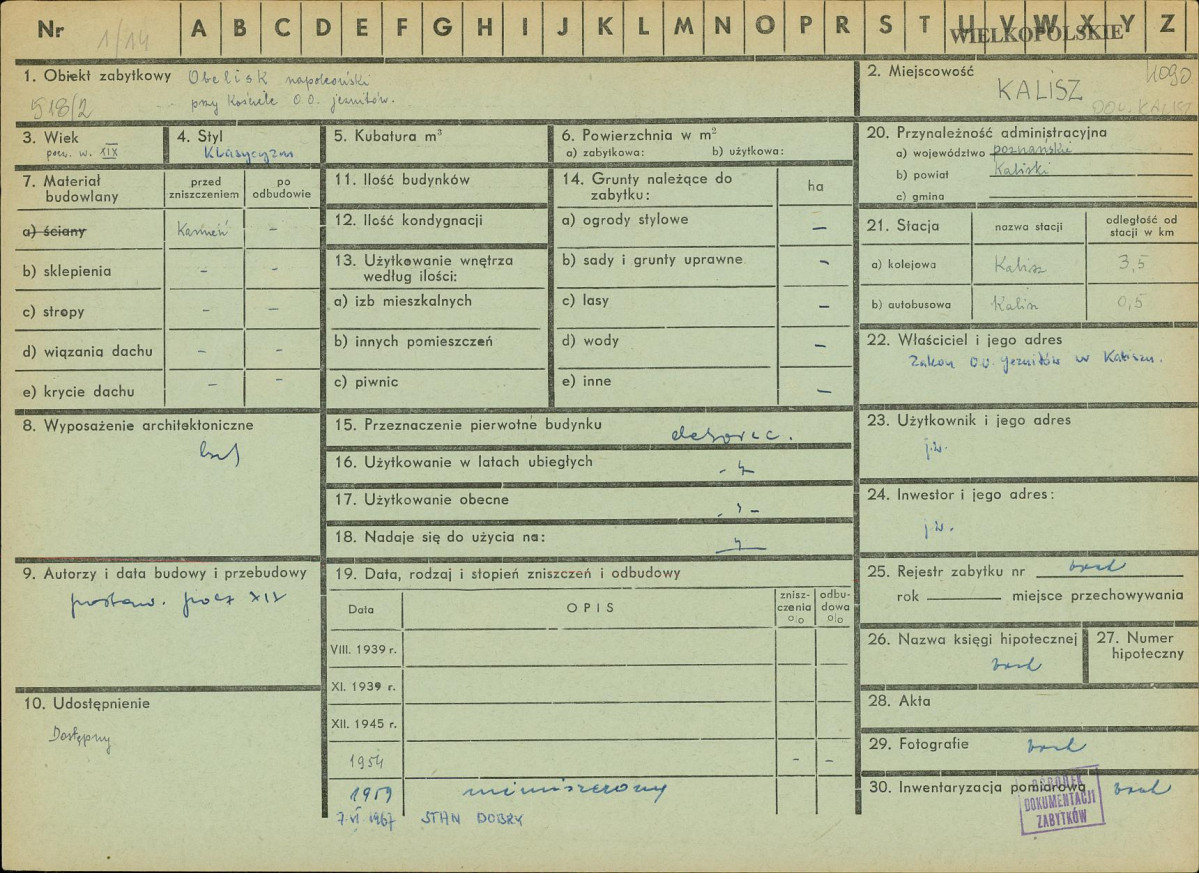 Nr 1/14 A B C D E F G H I J K L M N O P R S T U V W X Y Z
WIELKOPOLSKIE
1. Obiekt zabytkowy Obelisk napoleoński
518/2 przy Kościele O.O. jezuitów.
2. Miejscowość
KALISZ
POW. KALISZ
3. Wiek
pocz. w. XIX
4. Styl
Klasycyzm
5. Kubatura m³
6. Powierzchnia w m²
a) zabytkowa: b) użytkowa:
20. Przynależność administracyjna
a) województwo poznańskie
b) powiat Kaliski
c) gmina
7. Materiał budowlany
przed zniszczeniem
po odbudowie
a) ściany Kamień –
b) sklepienia – –
c) stropy – –
d) wiązania dachu – –
e) krycie dachu – –
11. Ilość budynków
12. Ilość kondygnacji
13. Użytkowanie wnętrza
według ilości:
a) izb mieszkalnych
b) innych pomieszczeń
c) piwnic
14. Grunty należące do
zabytku:
ha
a) ogrody stylowe –
b) sady i grunty uprawne –
c) lasy –
d) wody –
e) inne –
21. Stacja
nazwa stacji
odległość od
stacji w km
a) kolejowa Kalisz 3,5
b) autobusowa Kalisz 0,5
22. Właściciel i jego adres
Zakon O.O. Jezuitów w Kaliszu.
8. Wyposażenie architektoniczne
15. Przeznaczenie pierwotne budynku dekorac.
16. Użytkowanie w latach ubiegłych - " -
17. Użytkowanie obecne - " -
18. Nadaje się do użycia na: - " -
23. Użytkownik i jego adres
j.w.
24. Inwestor i jego adres:
j.w.
9. Autorzy i data budowy i przebudowy
postaw. pocz XIX
19. Data, rodzaj i stopień zniszczeń i odbudowy
Data
OPIS
znisz-
czenia
o|o
odbu-
dowa
o|o
VIII. 1939 r.
XI. 1939 r.
XII. 1945 r.
1954 – –
1959
7.VI.1967 STAN DOBRY
25. Rejestr zabytku nr brak
rok miejsce przechowywania
26. Nazwa księgi hipotecznej
brak
27. Numer
hipoteczny
10. Udostępnienie
Dostępny
28. Akta
29. Fotografie brak
30. Inwentaryzacja pomiarowa brak
OŚRODEK
DOKUMENTACJI
ZABYTKÓW